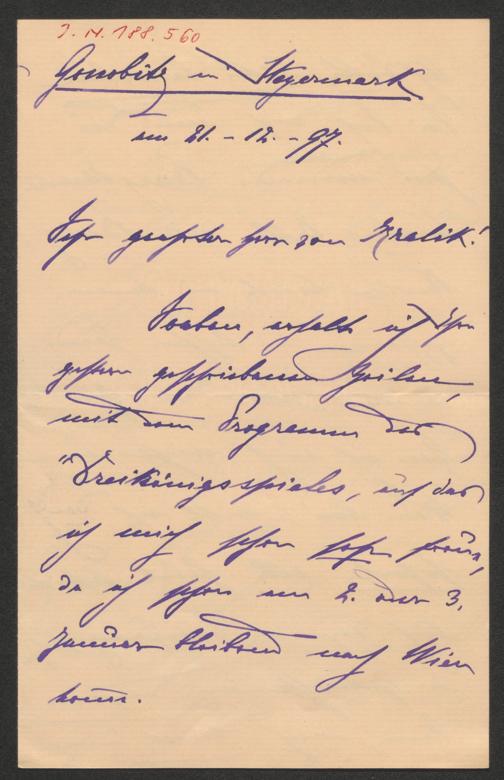 J. N. 188.560
Gonobitz in Steyermark
am 21. - 12. - 97.
Sehr geehrter Herr von Kralik!
Soeben, erhalte ich Ihre
gestern geschriebenen Zeilen,
mit dem Programm des
"Dreikönigsspieles, auf das
ich mich schon sehr freue,
da ich schon am 2. oder 3.
Januar bleibend nach Wien
komme.